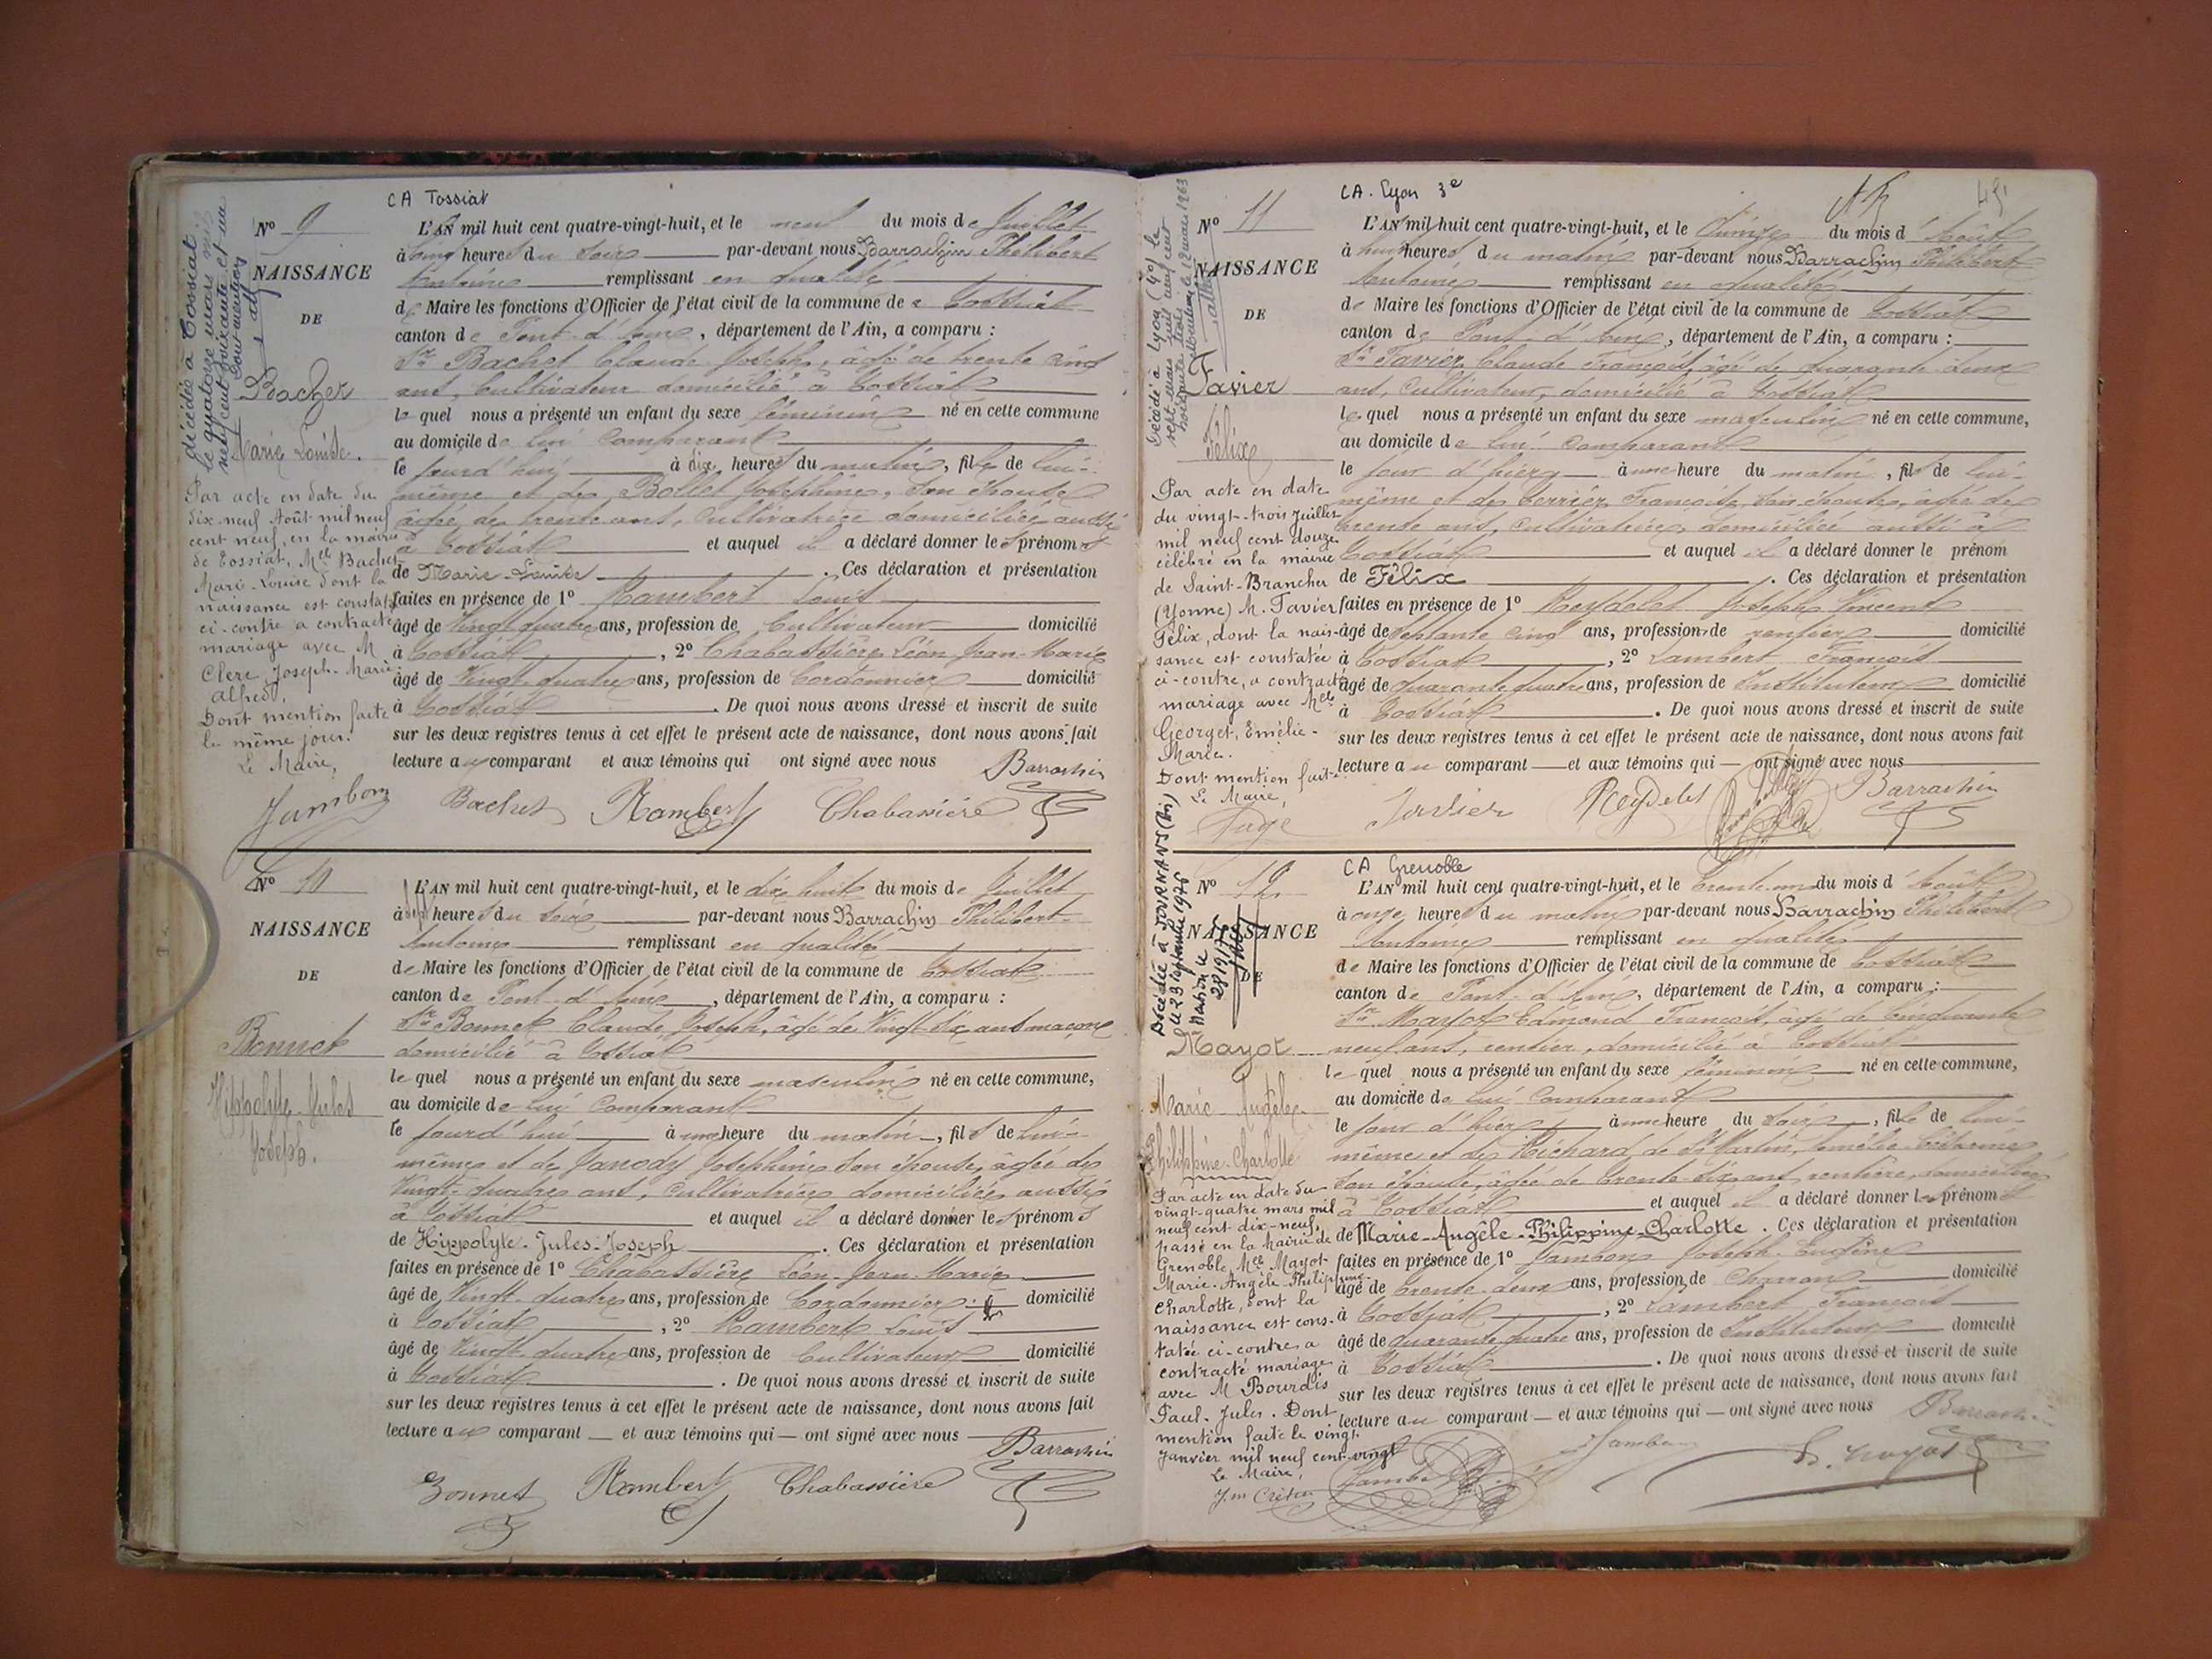 CA Tossiat
N° 9
NAISSANCE
DE
Bachet
Marie Louise.
décédée à Tossiat
le quatorze mars mil
neuf cent soixante et un
Dont mention
Par acte en date du
dix-neuf Août mil neuf
cent neuf, en la mairie
de Tossiat, Melle Bachet
Marie-Louise dont la
naissance est constatée
ci-contre a contracté
mariage avec M
Clerc Joseph-Marie
Alfred.
Dont mention faite
le même jour.
Le Maire,
Jambon
L'AN mil huit cent quatre-vingt-huit, et le neuf du mois de Juillet
à cinq heures du soir par-devant nous Barrachin Philibert
Antoine remplissant en qualité
de Maire les fonctions d'Officier de l'état civil de la commune de Tossiat
canton de Pont-d'Ain, département de l'Ain, a comparu :
Sr Bachet Claude Joseph, âgé de trente cinq
ans, Cultivateur domicilié à Tossiat
lequel nous a présenté un enfant du sexe féminin né en cette commune
au domicile de lui comparant
le jourd'hui à dix heures du matin, fille de lui-
même et de Bollet Joséphine, son épouse
âgée de trente ans, Cultivatrice domiciliée aussi
à Tossiat et auquel il a déclaré donner les prénoms
de Marie-Louise. Ces déclaration et présentation
faites en présence de 1° Rambert Louis
âgé de Vingt quatre ans, profession de Cultivateur domicilié
à Tossiat, 2° Chabassière Léon Jean-Marie
âgé de Vingt-quatre ans, profession de Cordonnier domicilié
à Tossiat. De quoi nous avons dressé et inscrit de suite
sur les deux registres tenus à cet effet le présent acte de naissance, dont nous avons fait
lecture au comparant et aux témoins qui ont signé avec nous
Bachet Rambert Chabassière Barrachin
N° 10
NAISSANCE
DE
Bonnet
Hippolyte-Jules
Joseph.
L'AN mil huit cent quatre-vingt-huit, et le dix huit du mois de Juillet
à sept heures du soir par-devant nous Barrachin Philibert
Antoine remplissant en qualité
de Maire les fonctions d'Officier de l'état civil de la commune de Tossiat
canton de Pont-d'Ain, département de l'Ain, a comparu :
Sr Bonnet Claude Joseph, âgé de Vingt-six ans maçon
domicilié à Tossiat
lequel nous a présenté un enfant du sexe masculin né en cette commune,
au domicile de lui comparant
le jourd'hui à une heure du matin, fils de lui-
même et de Janody Joséphine son épouse, âgée de
Vingt-quatre ans, Cultivatrice domiciliée aussi
à Tossiat et auquel il a déclaré donner les prénoms
de Hippolyte-Jules-Joseph. Ces déclaration et présentation
faites en présence de 1° Chabassière Léon-Jean-Marie
âgé de Vingt-quatre ans, profession de Cordonnier domicilié
à Tossiat, 2° Rambert Louis
âgé de Vingt-quatre ans, profession de Cultivateur domicilié
à Tossiat. De quoi nous avons dressé et inscrit de suite
sur les deux registres tenus à cet effet le présent acte de naissance, dont nous avons fait
lecture au comparant et aux témoins qui ont signé avec nous
Bonnet Rambert Chabassière Barrachin
CA. Lyon 3e
N° 11
NAISSANCE
DE
Favier
Félix
Décédé à Lyon
Par acte en date
du vingt-trois Juillet
mil neuf cent douze
célébré en la mairie
de Saint-Brancher
(Yonne) M. Favier
Félix, dont la nais-
sance est constatée
ci-contre, a contracté
mariage avec Melle
Georget, Emélie-
Marie.
Dont mention faite
Le Maire,
L'AN mil huit cent quatre-vingt-huit, et le Quinze du mois d'Août
à huit heures du matin par-devant nous Barrachin Philibert
Antoine remplissant en qualité
de Maire les fonctions d'Officier de l'état civil de la commune de Tossiat
canton de Pont-d'Ain, département de l'Ain, a comparu :
Sr Favier Claude François, âgé de quarante deux
ans, Cultivateur, domicilié à Tossiat
lequel nous a présenté un enfant du sexe masculin né en cette commune,
au domicile de lui comparant
le jour d'hier à une heure du matin, fils de lui-
même et de Terrier Françoise son épouse, âgée de
trente ans, Cultivatrice, domiciliée aussi à
Tossiat et auquel il a déclaré donner le prénom
de Félix. Ces déclaration et présentation
faites en présence de 1° Reydelet Joseph Vincent
âgé de Septante cinq ans, profession de rentier domicilié
à Tossiat, 2° Lambert François
âgé de quarante quatre ans, profession de Instituteur domicilié
à Tossiat. De quoi nous avons dressé et inscrit de suite
sur les deux registres tenus à cet effet le présent acte de naissance, dont nous avons fait
lecture au comparant et aux témoins qui ont signé avec nous
Favier Reydelet Barrachin
CA Grenoble
N° 12
NAISSANCE
DE
Mayot
Marie-Angèle
Philippine-Charlotte
Décédée à JOURNANS (Ain)
le 23 septembre 1975
Mention le
28/9/75
Par acte en date du
vingt-quatre mars mil
neuf cent dix-neuf,
passé en la mairie de
Grenoble, Melle Mayot
Marie-Angèle-Philippine-
Charlotte, dont la
naissance est cons-
tatée ci-contre a
contracté mariage
avec M Bourdis
Paul-Jules. Dont
mention faite le vingt
Janvier mil neuf cent vingt
Le Maire,
L'AN mil huit cent quatre-vingt-huit, et le trente-un du mois d'Août
à onze heures du matin par-devant nous Barrachin Philibert
Antoine remplissant en qualité
de Maire les fonctions d'Officier de l'état civil de la commune de Tossiat
canton de Pont-d'Ain, département de l'Ain, a comparu :
Sr Mayot Edmond François, âgé de Cinquante
neuf ans, rentier, domicilié à Tossiat
lequel nous a présenté un enfant du sexe féminin né en cette commune,
au domicile de lui comparant
le jour d'hier à une heure du soir, fille de lui-
même et de Richard de St Martin, Amélie
son épouse, âgée de trente-six ans, rentière, domiciliée
à Tossiat et auquel il a déclaré donner les prénoms
de Marie-Angèle-Philippine-Charlotte. Ces déclaration et présentation
faites en présence de 1° Jambon Joseph-Eugène
âgé de trente-deux ans, profession de Charron domicilié
à Tossiat, 2° Lambert François
âgé de quarante quatre ans, profession de Instituteur domicilié
à Tossiat. De quoi nous avons dressé et inscrit de suite
sur les deux registres tenus à cet effet le présent acte de naissance, dont nous avons fait
lecture au comparant et aux témoins qui ont signé avec nous
Jambon Barrachin